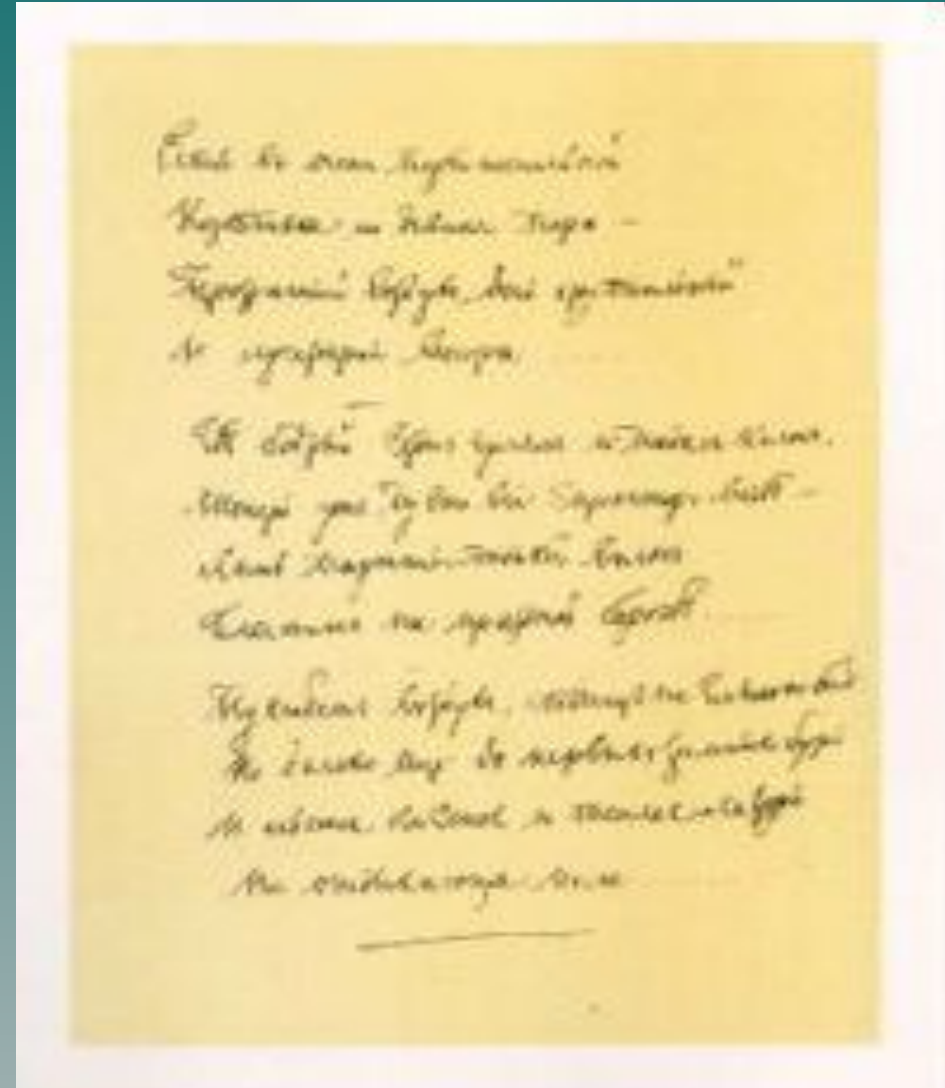 Есть в осени первоначальной
Короткая но дивная пора —
Прозрачный воздух, день хрустальный
И лучезарны вечера
Где бодрый серп гулял и падал колос,
уж пусто все простор везде —
Лишь паутины тонкий волос
Блестит на праздной борозде
Пустеет воздух, птиц не слышно боле
Но далеко еще до первых зимних бурь
И льется и теплая лазурь
На отдыхающее поле